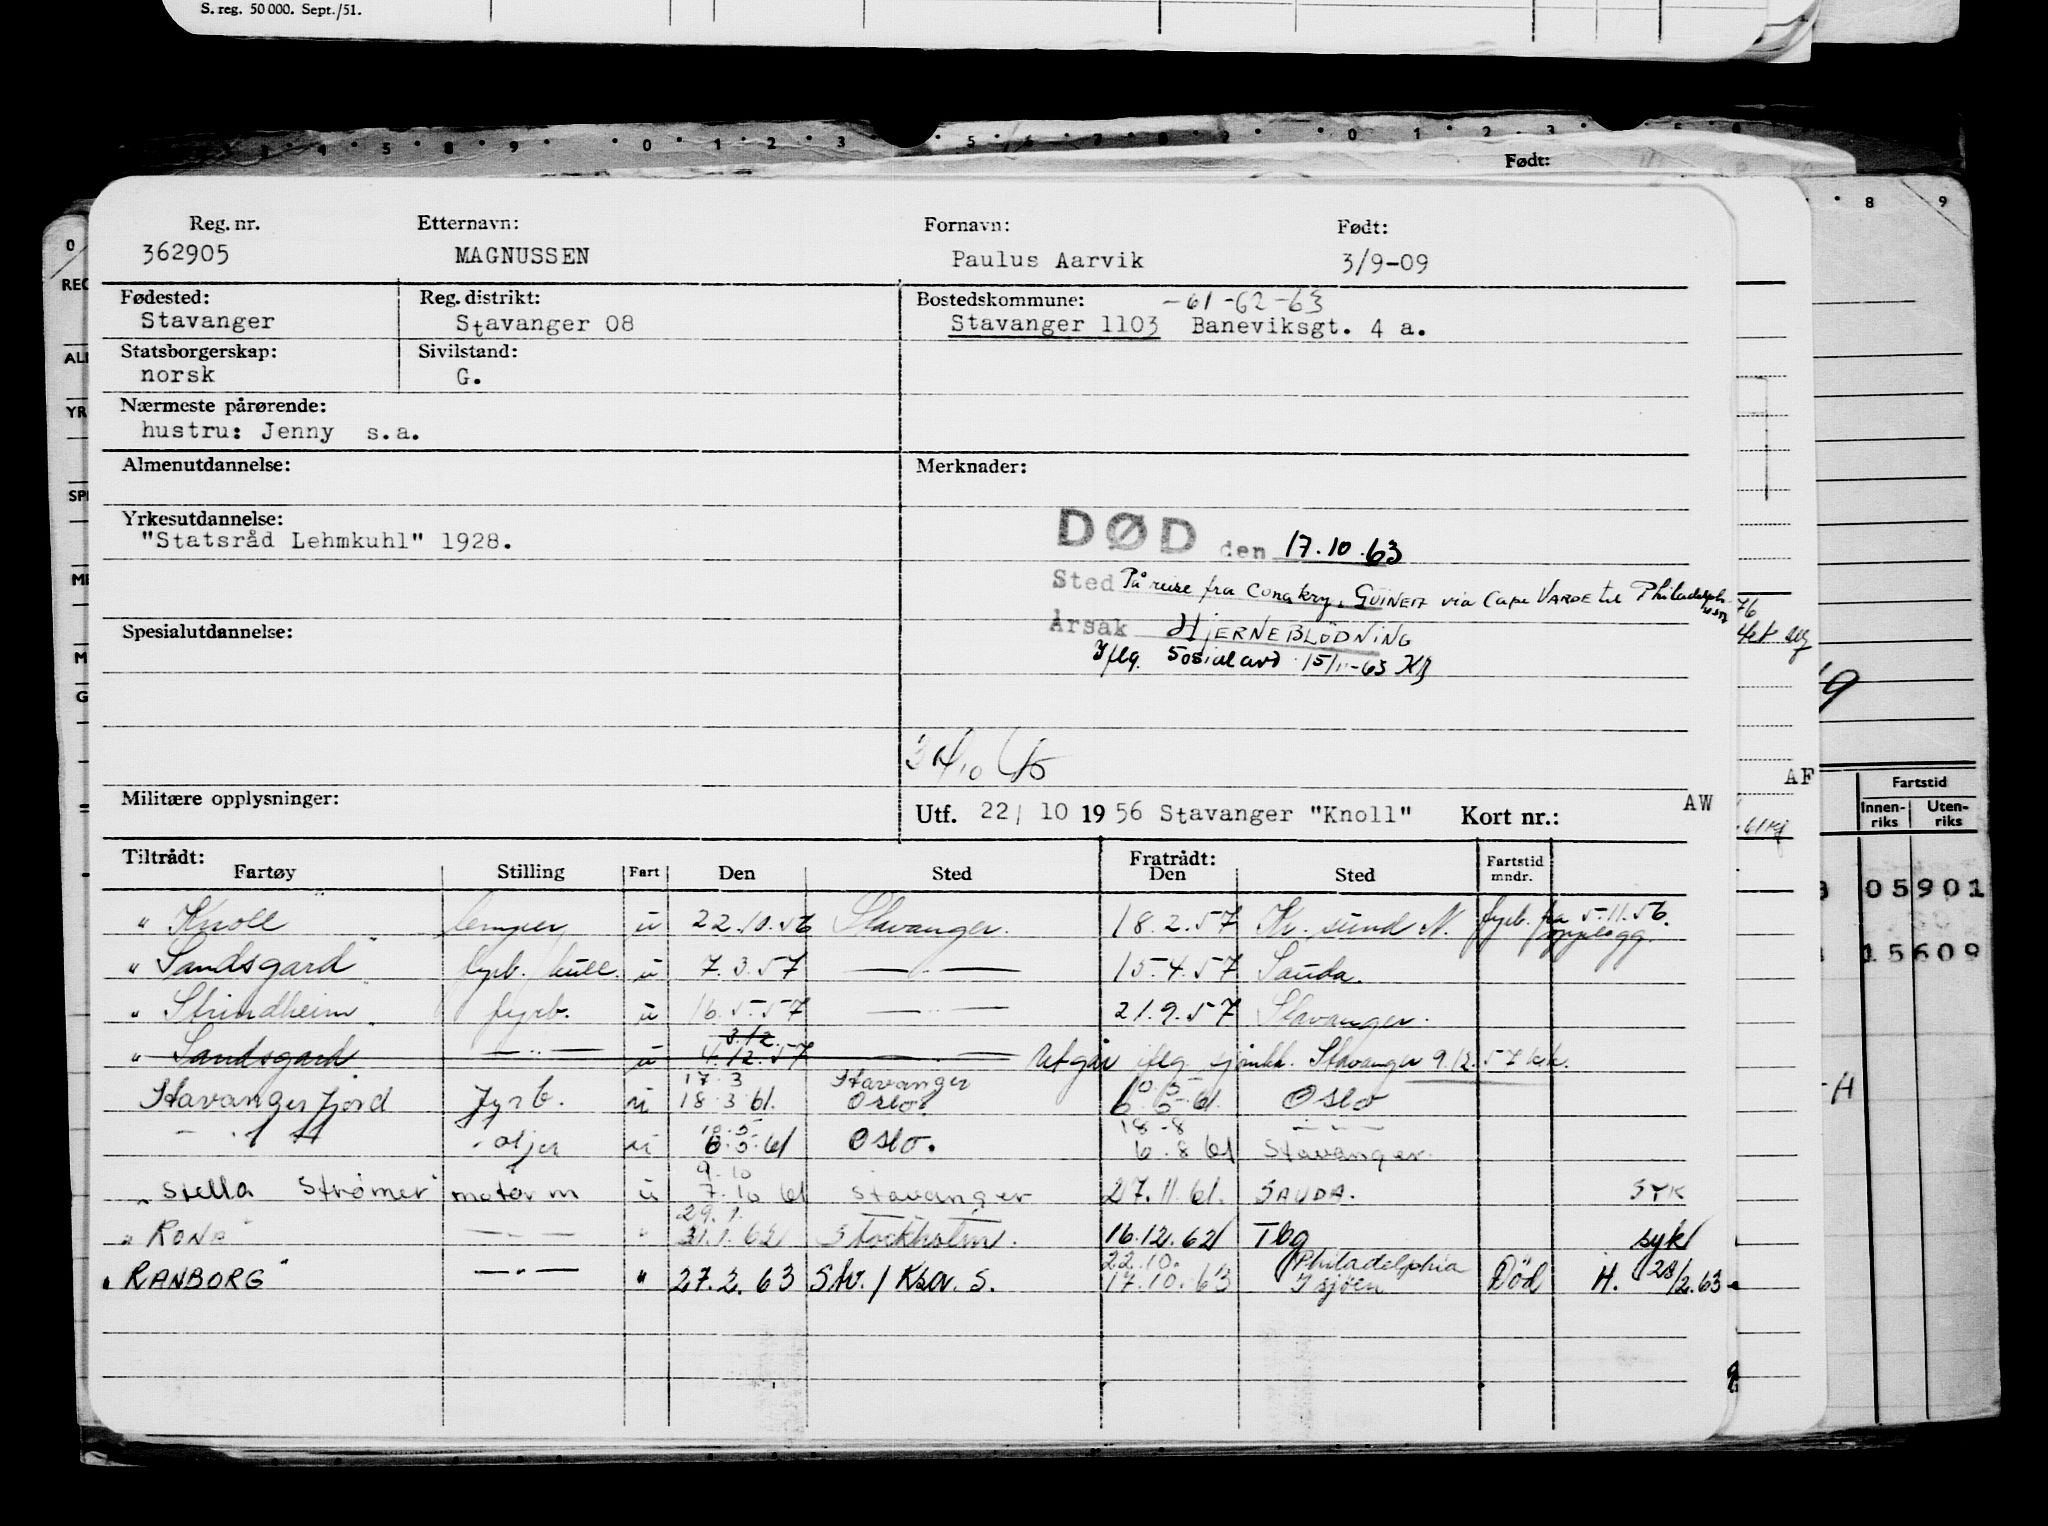 S. reg. 50 000. Sept./51.
Født:
Reg. nr. Etternavn: Fornavn: Født:
362905 MAGNUSSEN Paulus Aarvik 3/9-09
Fødested: Reg. distrikt: Bostedskommune: -61-62-63
Stavanger Stavanger 08 Stavanger 1103 Baneviksgt. 4 a.
Statsborgerskap: Sivilstand:
norsk G.
Nærmeste pårørende:
hustru: Jenny s.a.
Almenutdannelse: Merknader:
Yrkesutdannelse:
"Statsråd Lehmkuhl" 1928.
DØD den 17.10.63
Sted På reise fra Conakry, GUINEA via Cape VARDE til Philadelph
Årsak HJERNEBLÖDNING
Iflg. Sosialavd 15/11-63
Spesialutdannelse:
Militære opplysninger: Utf. 22/ 10 1956 Stavanger "Knoll" Kort nr.: AW
AF
Fartstid
Innen-riks Uten-riks
05901
15609
Tiltrådt: Fratrådt:
Fartøy Stilling Fart Den Sted Den Sted Fartstid mndr.
" Knoll " lemper u 22.10.56 Stavanger. 18.2.57 Kr. sund N. fyrb. fra 5.11.56. opplogg.
" Sandsgard " fyrb. kull. u 7.3.57 —"— 15.4.57 Sauda.
" Strindheim " fyrb. u 16.5.57 —"— 21.9.57 Stavanger.
3/12
" Sandsgard —"— u 4.12.57 —"— Utgår iflg sjmkt. Stavanger 9.12.57 kk.
17.3 Stavanger 10.5
Stavangerfjord Fyrb. u 18.3.61. Oslo. 6.5.61. Oslo
10.5 18-8 —"—
—"— oljer u 6.5.61 Oslo. 6.8.61 Stavanger.
9.10
"Stella Strømer" motorm u 7.10.61 Stavanger 27.11.61. SAUDA. SYK
29.1.
"RONA" —"— " 31.1.62 Stockholm. 16.12.62 Tbg syk
22.10. Philadelphia
"RANBORG" —"— " 27.2.63 Stv./Krsa. S. 17.10.63 I sjøen Död H. 28/2.63